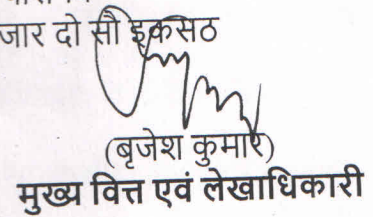 जार दो सौ इकसठ
(बृजेश कुमार)
मुख्य वित्त एवं लेखाधिकारी